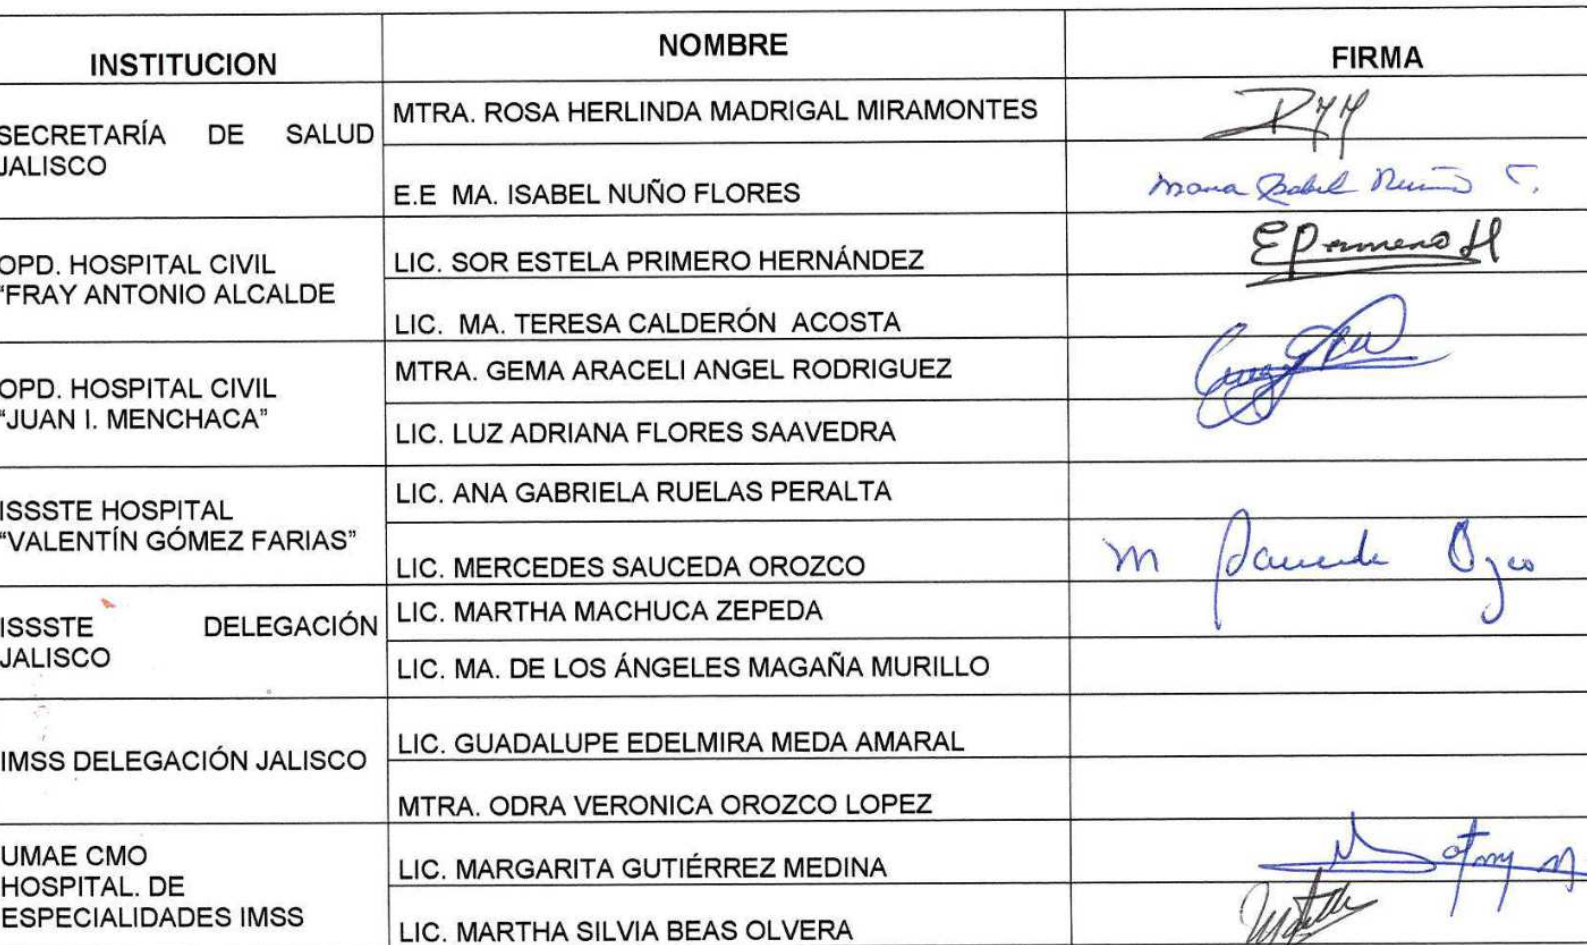 INSTITUCION NOMBRE FIRMA
SECRETARÍA DE SALUD
JALISCO
MTRA. ROSA HERLINDA MADRIGAL MIRAMONTES
E.E MA. ISABEL NUÑO FLORES
OPD. HOSPITAL CIVIL
“FRAY ANTONIO ALCALDE
LIC. SOR ESTELA PRIMERO HERNÁNDEZ
LIC. MA. TERESA CALDERÓN ACOSTA
OPD. HOSPITAL CIVIL
“JUAN I. MENCHACA”
MTRA. GEMA ARACELI ANGEL RODRIGUEZ
LIC. LUZ ADRIANA FLORES SAAVEDRA
ISSSTE HOSPITAL
“VALENTÍN GÓMEZ FARIAS”
LIC. ANA GABRIELA RUELAS PERALTA
LIC. MERCEDES SAUCEDA OROZCO
ISSSTE DELEGACIÓN
JALISCO
LIC. MARTHA MACHUCA ZEPEDA
LIC. MA. DE LOS ÁNGELES MAGAÑA MURILLO
IMSS DELEGACIÓN JALISCO
LIC. GUADALUPE EDELMIRA MEDA AMARAL
MTRA. ODRA VERONICA OROZCO LOPEZ
UMAE CMO
HOSPITAL. DE
ESPECIALIDADES IMSS
LIC. MARGARITA GUTIÉRREZ MEDINA
LIC. MARTHA SILVIA BEAS OLVERA